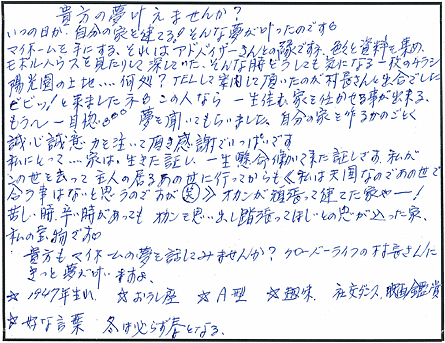 貴方の夢叶えませんか?
いつの日か、自分の家を建てる!そんな夢が叶ったのですね
マイホームを手にする、それはアドバイザーさんとの縁ですネ、色々と資料を集め、
モデルハウスを見たりして深めていた、そんな時どうしても気になる一枚のチラシ
陽光園の土地…。何処?TELして案内して頂いたのが村長さんと出合でした
ビビッ!と来ましたネ。この人なら一生住む家を仕かせる事が出来る、
もう〜一目惚。夢を聞いてもらいました、自分の家を作るかのごとく
誠心誠意力を注いで頂き感謝でいっぱいです
私にとって…家は、生きた証し、一生懸命働いてきた証しです、私が
この世を去って主人の居るあの世に行ってからも《私は天国なのであの世で
合う事はないと思うのですが(笑)》オカンが頑張って建てた家や〜!
苦しい時、辛い時があってもオカンを思い出し踏張ってほしいとの思が込った家、
私の宝物です。
貴方もマイホームの夢を話してみませんか?クローバーライフの村長さんに
きっと夢が叶いますよ。
☆1947年生れ ☆おうし座 ☆A型 ☆趣味、社交ダンス、映画鑑賞
☆好な言葉 冬は必らず春となる。